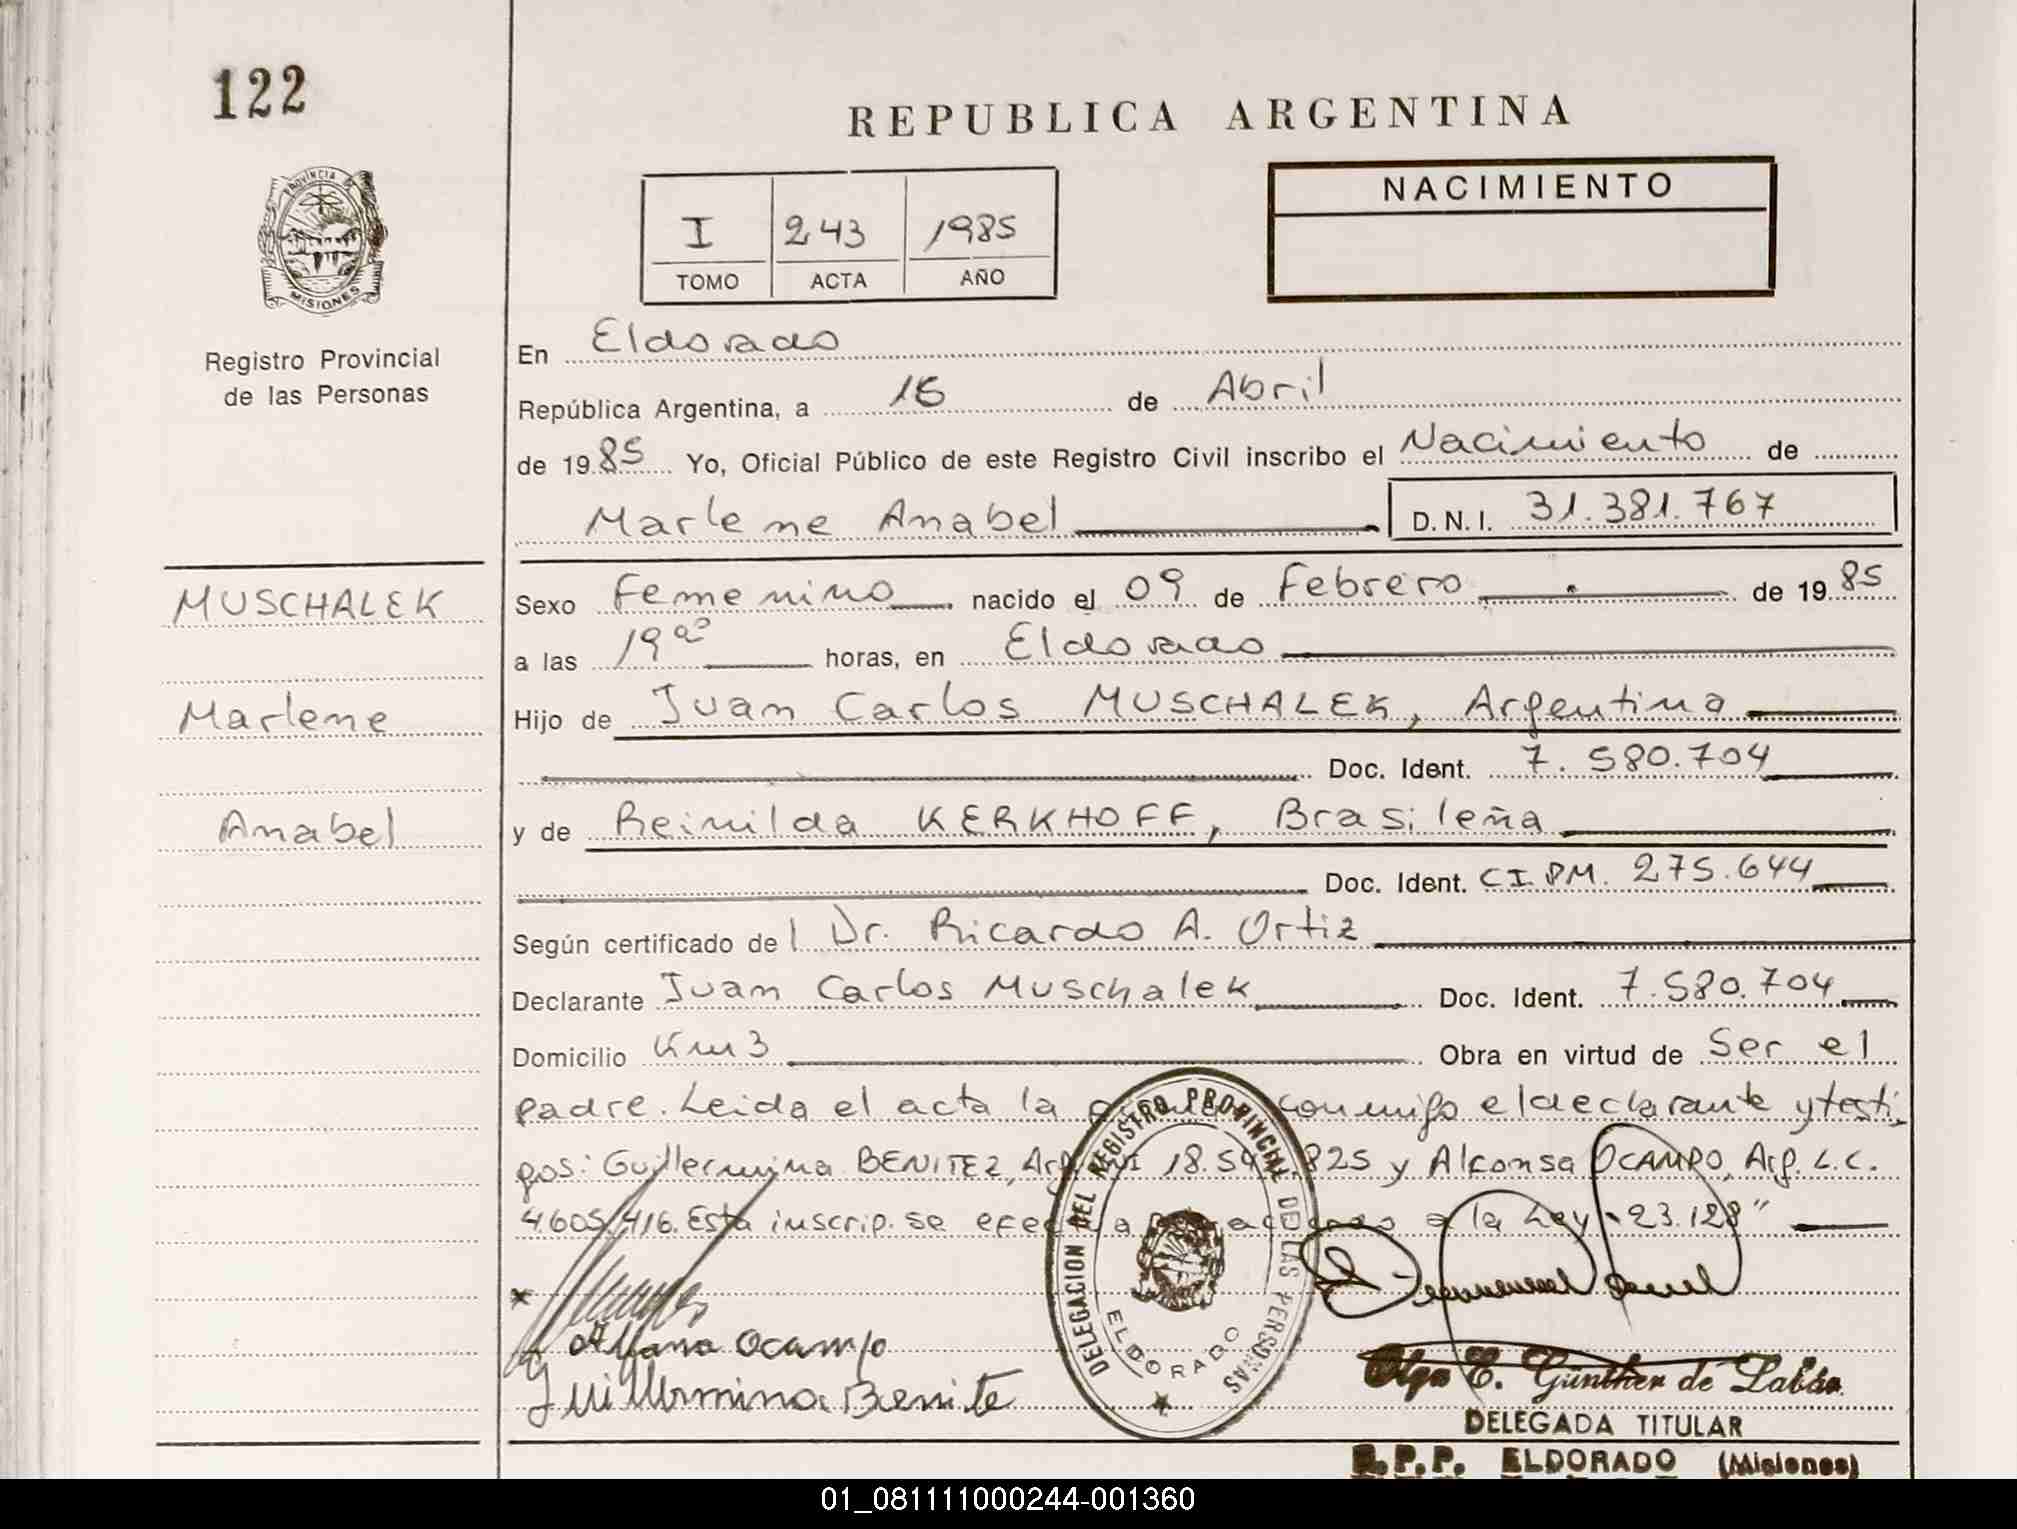 122
REPUBLICA ARGENTINA
PROVINCIA DE
MISIONES
Registro Provincial
de las Personas
I 243 1985
TOMO ACTA AÑO
NACIMIENTO
En Eldorado
República Argentina, a 16 de Abril
de 1985 Yo, Oficial Público de este Registro Civil inscribo el Nacimiento de
Marlene Anabel D. N. I. 31.381.767
MUSCHALEK
Marlene
Anabel
Sexo Femenino nacido el 09 de Febrero de 1985
a las 19 horas, en Eldorado
Hijo de Juan Carlos MUSCHALEK, Argentina
Doc. Ident. 7.580.704
y de Reinilda KERKHOFF, Brasileña
Doc. Ident. C.I. PM. 275.644
Según certificado del Dr. Ricardo A. Ortiz
Declarante Juan Carlos Muschalek Doc. Ident. 7.580.704
Domicilio Km 3 Obra en virtud de Ser el
padre. Leida el acta la conmigo el declarante y testi
gos: Guillermina BENITEZ, Arg. 18.54 825 y Alfonsa OCAMPO, Arg. L.C.
4.605.416. Esta inscrip. se a la Ley "23.128"
Ocampo
Guillermina Benite
DELEGACION DEL REGISTRO PROVINCIAL DE LAS PERSONAS
ELDORADO
Olga E. Günther de Labán
DELEGADA TITULAR
R.P.P. ELDORADO (Misiones)
01_081111000244-001360